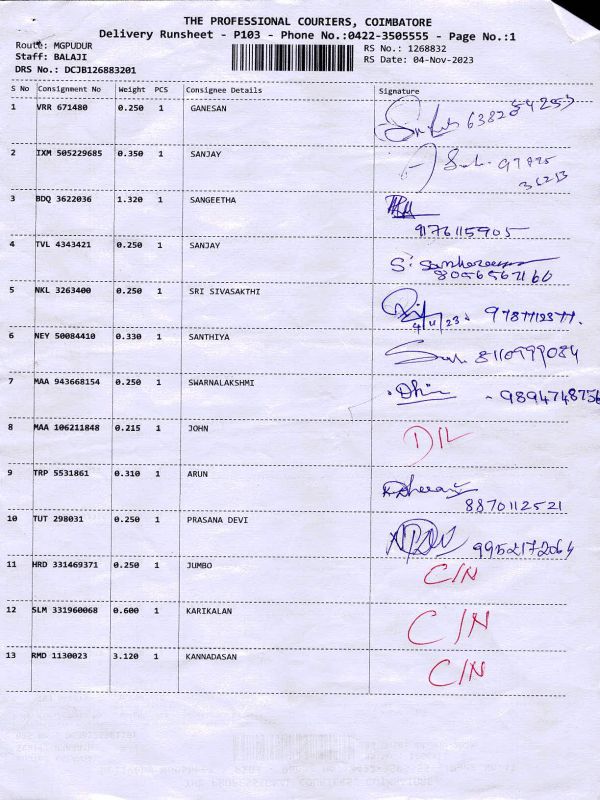 THE PROFESSIONAL COURIERS, COIMBATORE
Delivery Runsheet - P103 - Phone No.:0422-3505555 - Page No.:1
Route: MGPUDUR RS No.: 1268832
Staff: BALAJI RS Date: 04-Nov-2023
DRS No.: DCJB126883201
S No Consignment No Weight PCS Consignee Details Signature
1 VRR 671480 0.250 1 GANESAN
2 IXM 505229685 0.350 1 SANJAY
3 BDQ 3622036 1.320 1 SANGEETHA
9176115905
4 TVL 4343421 0.250 1 SANJAY
8056567160
5 NKL 3263400 0.250 1 SRI SIVASAKTHI
4/11/23 9787712377.
6 NEY 50084410 0.330 1 SANTHIYA 8110999084
7 MAA 943668154 0.250 1 SWARNALAKSHMI
- 9894748756
8 MAA 106211848 0.215 1 JOHN D/L
9 TRP 5531861 0.310 1 ARUN
8870112521
10 TUT 298031 0.250 1 PRASANA DEVI
9952172064
11 HRD 331469371 0.250 1 JUMBO C/N
12 SLM 331960068 0.600 1 KARIKALAN C/N
13 RMD 1130023 3.120 1 KANNADASAN C/N